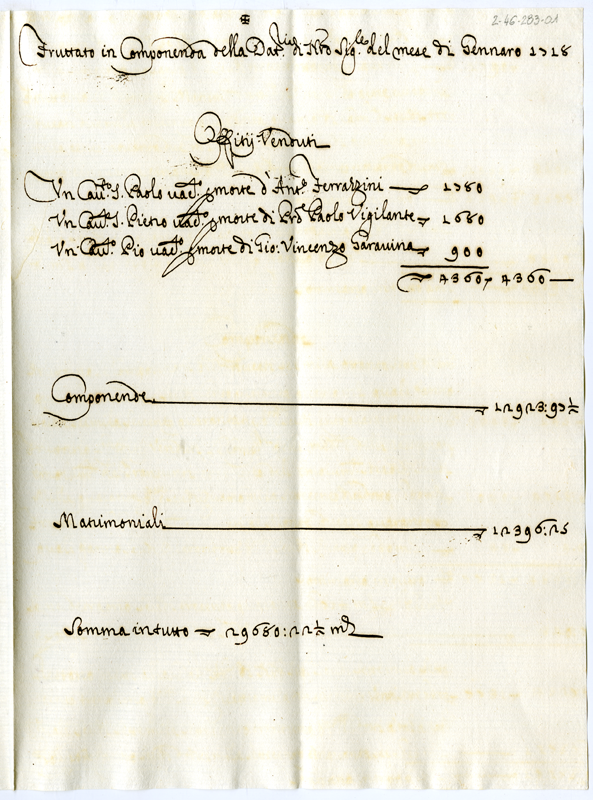 2-46-283-01
Fruttato in Componenda della Dat.ria di N'ro Sig.re del mese di Gennaro 1718
Offitij Venduti
Un Cau.to S. Paolo uac.to p morte d'Ant.o Ferrazzini — 1780
Un Cau.to S. Pietro uac.to p morte di Paolo Vigilante 1680
Un Cau.to Pio uac.to p morte di Gio: Vincenzo Garauina 900
4360, 4360 —
Componende 12923:97½
Matrimoniali 12396:25
Somma in tutto 29680:22½ m.ta